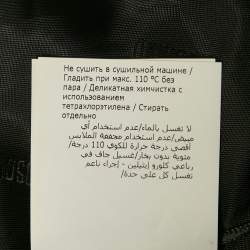 Не сушить в сушильной машине /
Гладить при макс. 110 ºC без
пара / Деликатная химчистка с
использованием
тетрахлорэтилена / Стирать
отдельно
لا تغسل بالماء/عدم استخدام أي
مبيض/عدم استخدام مجففة الملابس
أقصى درجة حرارة للكوي 110 درجة/
مئوية بدون بخار/غسيل جاف في
رباعي كلورو إيثيلين - إجراء ناعم
تغسل كل على حدة/